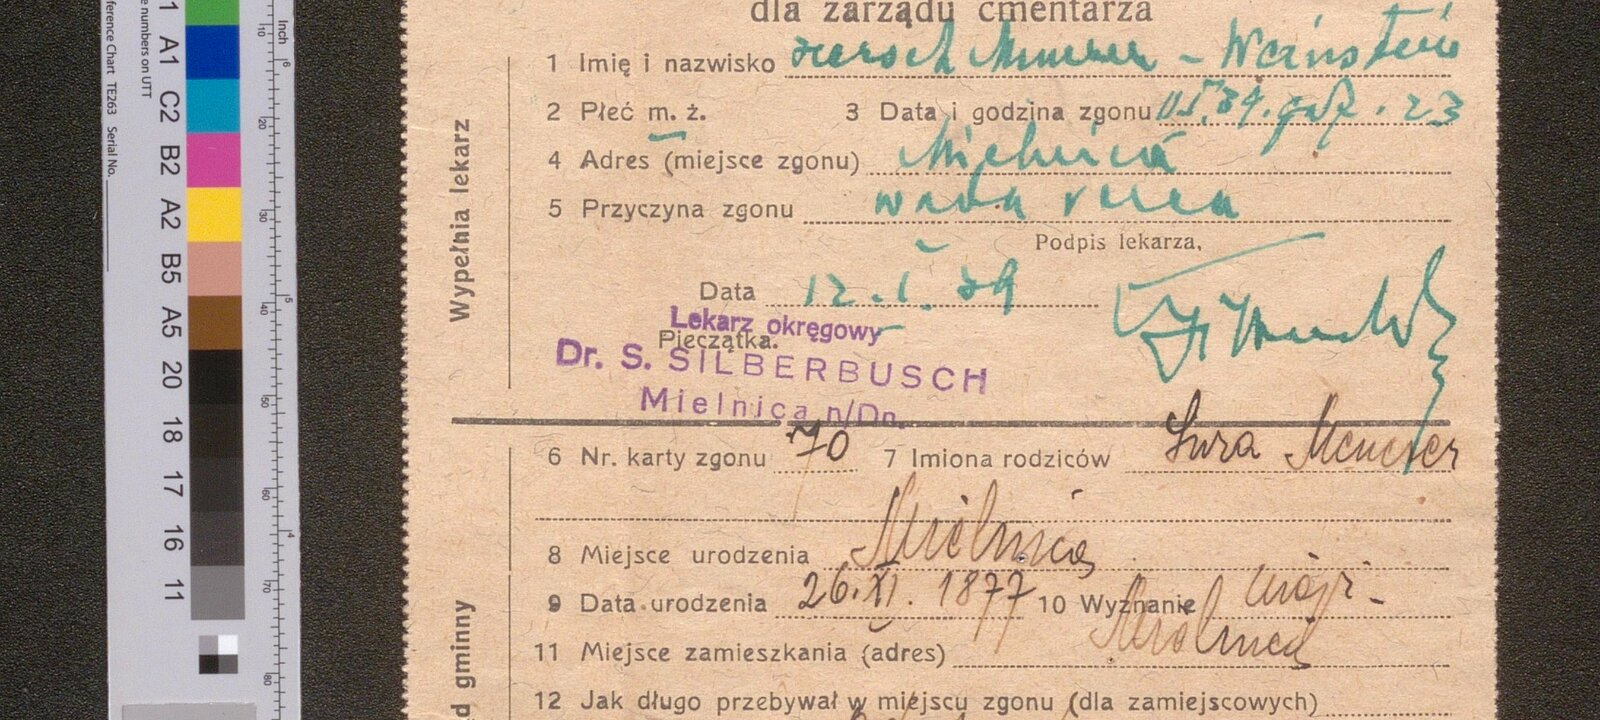 dla zarządu cmentarza
1 Imię i nazwisko Hersch Menczer - Weinstein
2 Płeć m. ż. 3 Data i godzina zgonu godz. 23
4 Adres (miejsce zgonu) Mielnica
5 Przyczyna zgonu wada serca
Podpis lekarza,
Data 12.I.39
Lekarz okręgowy
Pieczątka.
Dr. S. SILBERBUSCH
Mielnica n/Dn.
Wypełnia lekarz
6 Nr. karty zgonu 70 7 Imiona rodziców Sura
8 Miejsce urodzenia Mielnica
9 Data urodzenia 26.XI. 1877 10 Wyznanie mojż.
11 Miejsce zamieszkania (adres) Mielnica
12 Jak długo przebywał w miejscu zgonu (dla zamiejscowych)
d gminny
ference Chart TE263 Serial No.
e numbers on UTT
1 A1 C2 B2 A2 B5 A5 20 18 17 16 11
Inch
10 20 30 40 50 60 70 80
6 5 4